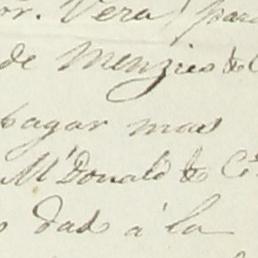 or. Vera para
de Menzies & C
pagar mas
McDonald & Cª
dad á la